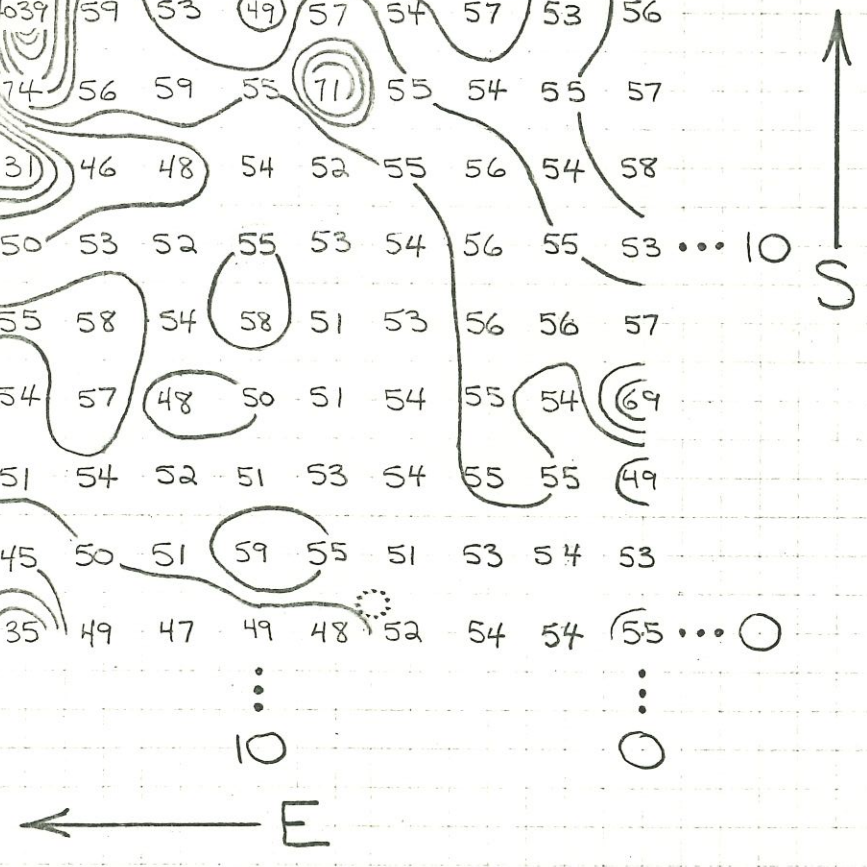 39 59 53 49 57 54 57 53 56
74 56 59 55 71 55 54 55 57
31 46 48 54 52 55 56 54 58
50 53 52 55 53 54 56 55 53 ••• 10
S
55 58 54 58 51 53 56 56 57
54 57 48 50 51 54 55 54 69
51 54 52 51 53 54 55 55 49
45 50 51 59 55 51 53 54 53
35 49 47 49 48 52 54 54 55 ••• 0
10 0
E